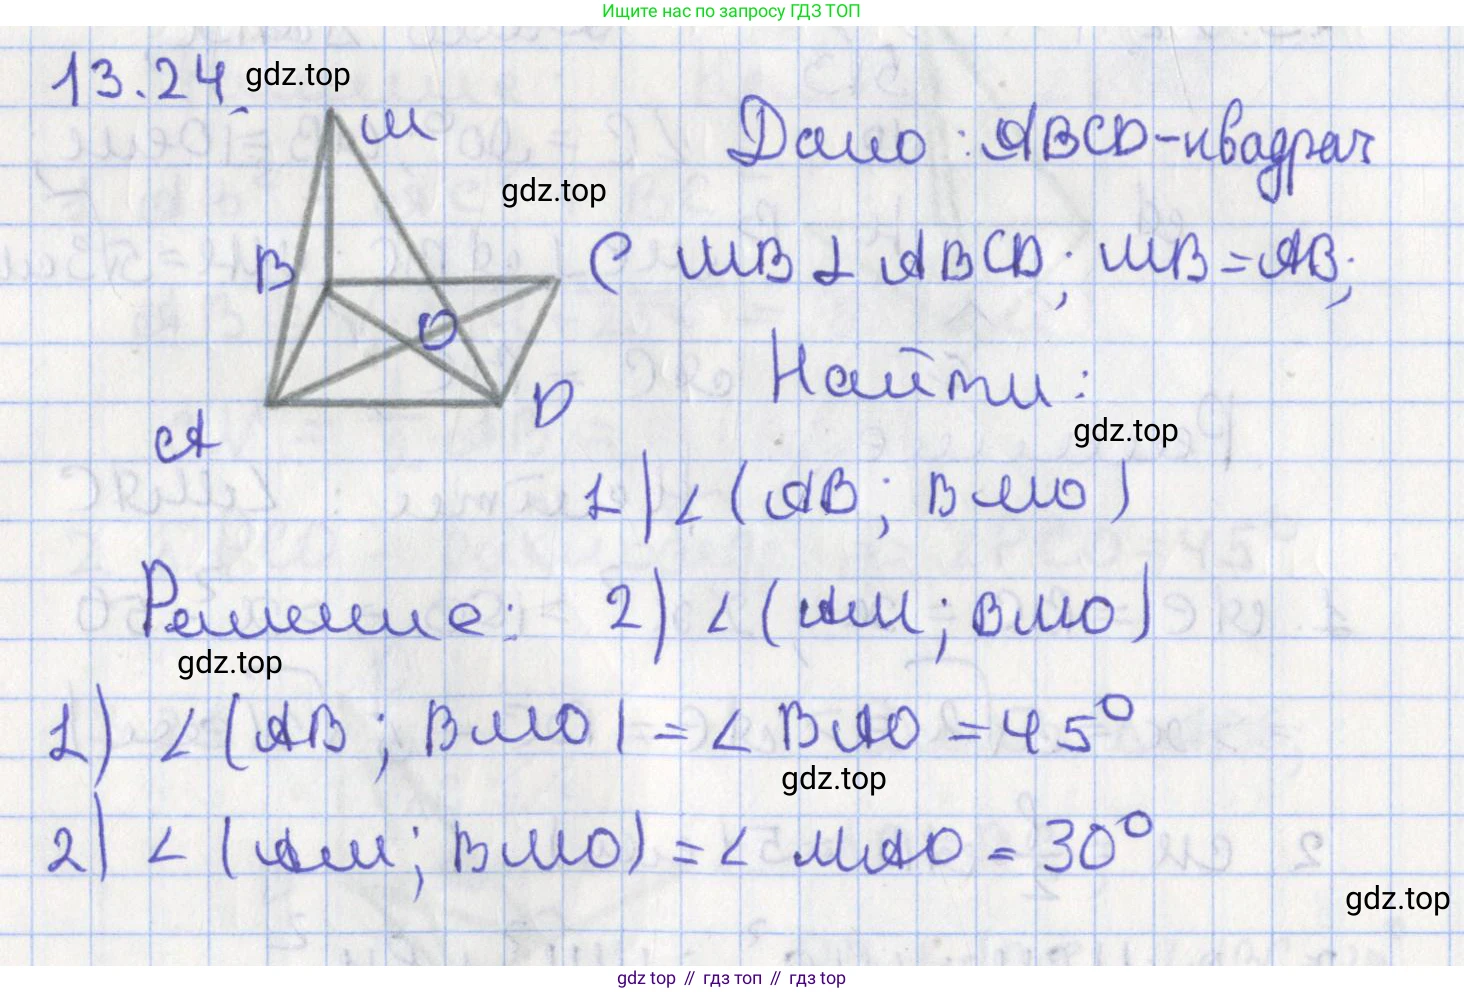 Ищите нас по запросу ГДЗ ТОП
13.24. gdz.top
M
Дано: ABCD-квадрат
gdz.top
B C MB ⊥ ABCD; MB=AB;
O
Найти:
A D
gdz.top
1) ∠(AB; BMO)
Решение: 2) ∠(AM; BMO)
gdz.top
1) ∠(AB; BMO) = ∠BAO = 45°
gdz.top
2) ∠(AM; BMO) = ∠MAO = 30°
gdz.top
gdz top // гдз топ // гдз top